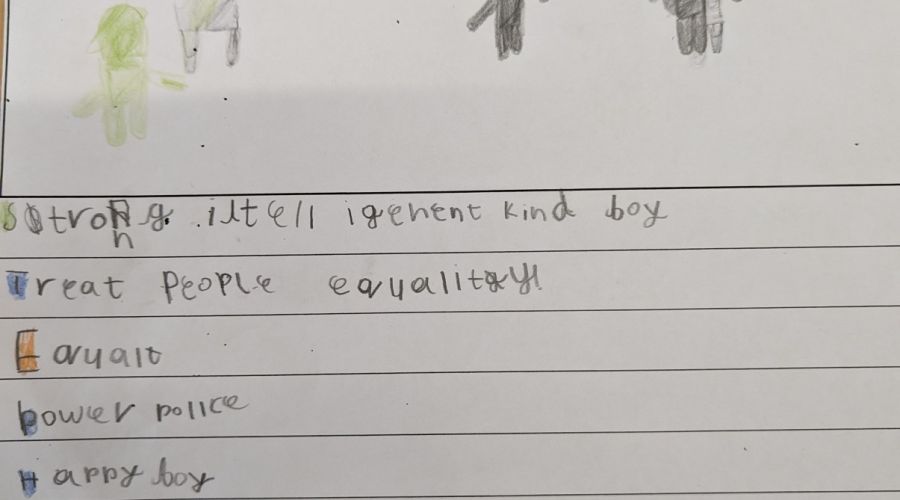 Strong iltell igenent kind boy
Treat People equalitay!
Equalt
power police
Happy boy